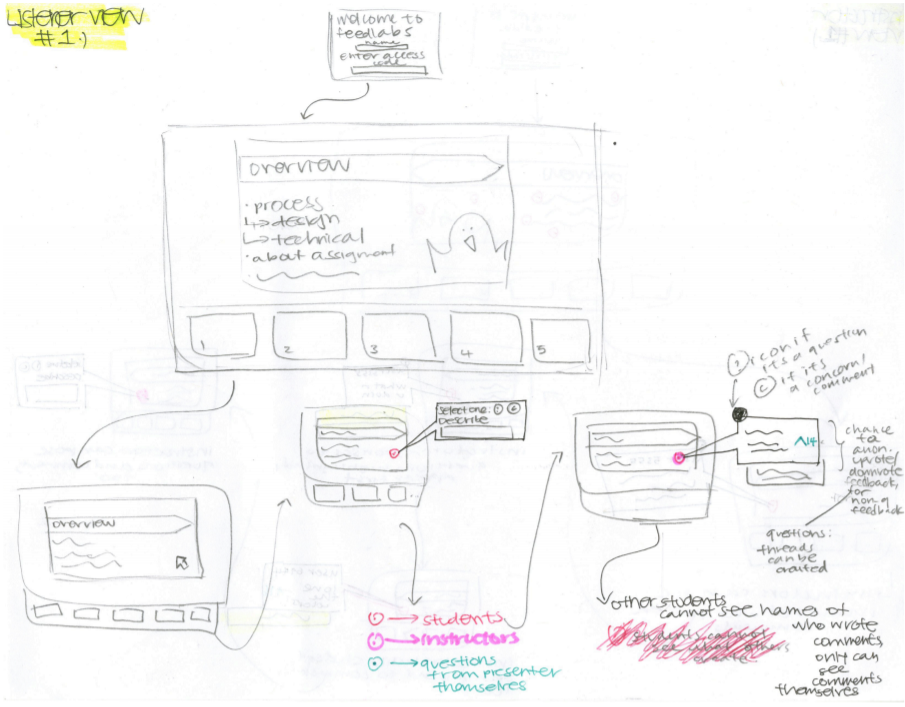 Listener view
#1.)
welcome to
feedlabs
name
enter access
code
overview
· process
↳ design
↳ technical
· about assigment
1
2
3
4
5
overview
select one:
Describe
? icon if
its a question
c if its
a concern/
comment
^14
chance
to
anon.
upvote/
downvote
feedback,
for
non q
feedback
questions:
threads
can be
created
→ students
→ instructors
→ questions
from presenter
themselves
other students
cannot see names of
who wrote
comments,
only can
see
comments
themselves
students cannot
see what others
create